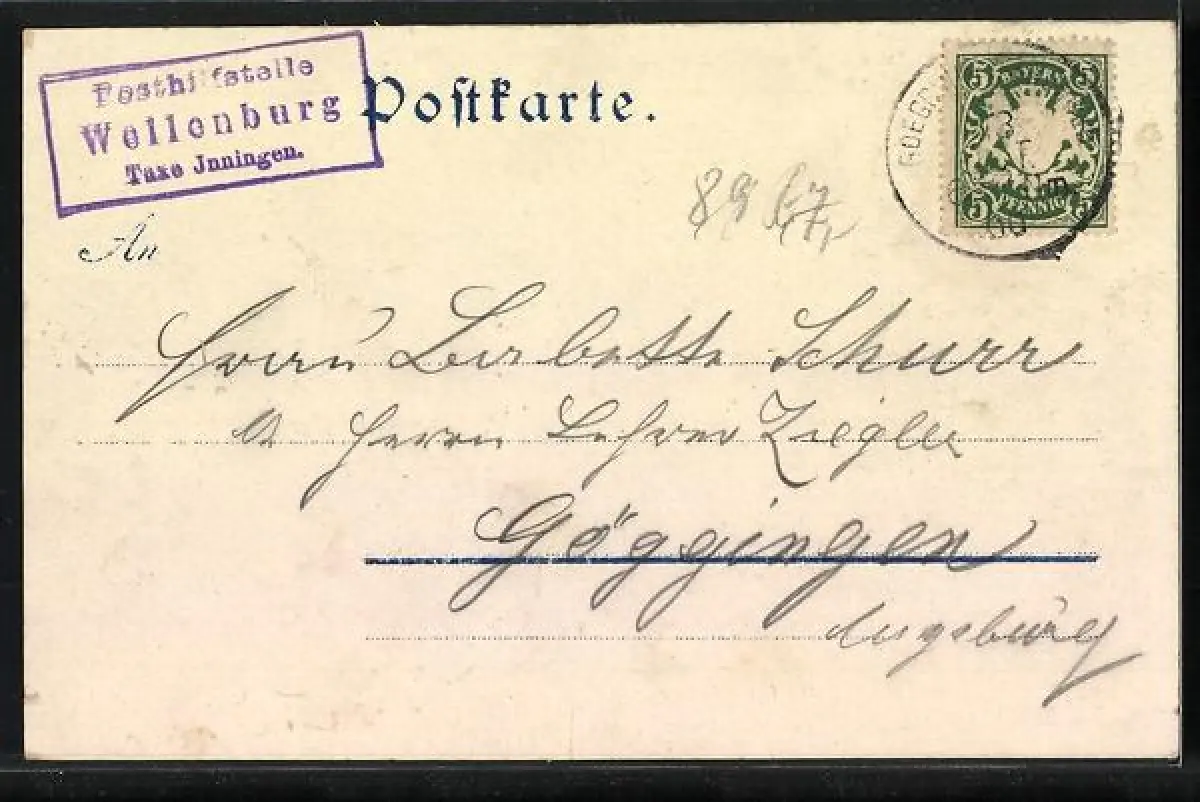 Posthilfstelle
Wellenburg
Taxe Jnningen.
Postkarte.
5 BAYERN 5
5 PFENNIG 5
89
An
Frau Lisbette Schurr
Herrn Lehrer Ziegler
Göggingen
Augsburg